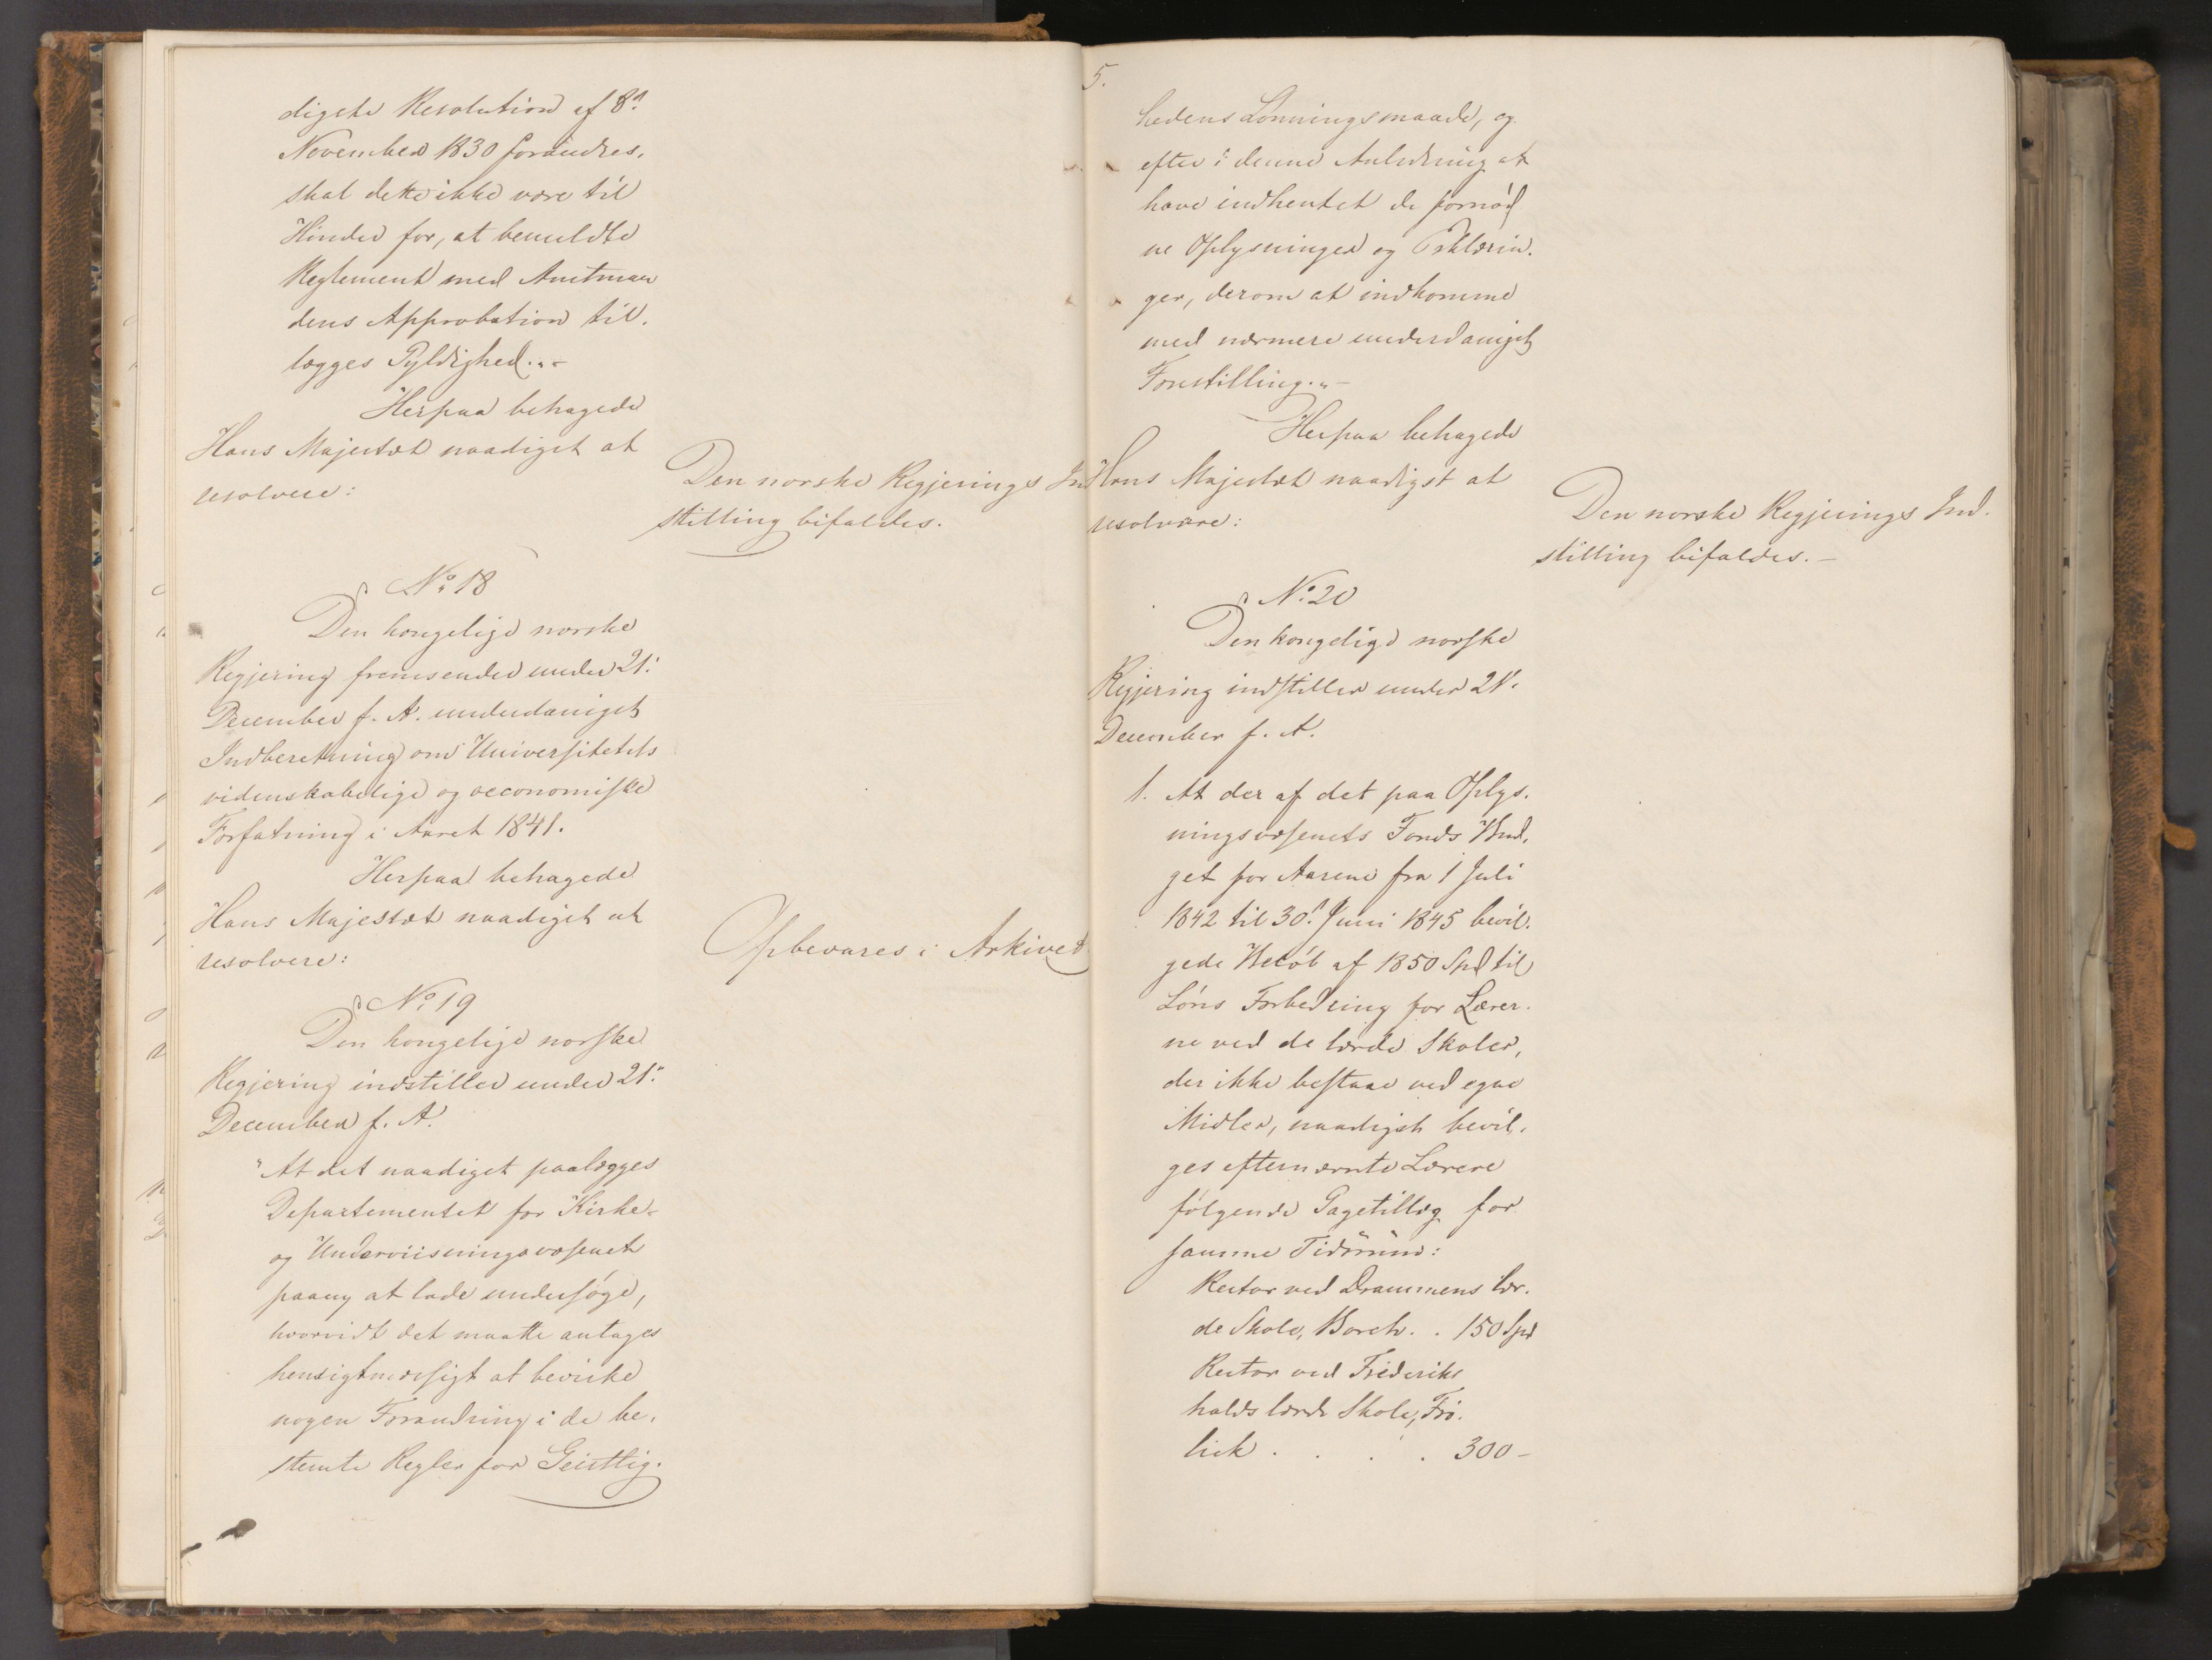 digste Resolution af 8de
November 1830 forandres,
skal dette ikke være til
Hinder for, at bemeldte
Reglement med Amtman
dens Approbation til-
lægges Gyldighed."-
Herpaa behagede
Hans Majestæt naadigst at
resolvere:
Den norske Regjerings Ind
stilling bifaldes.
No 18
Den kongelige norske
Regjering fremsender under 21.
December f. A. underdanigst
Indberetning om Universitetets
videnskabelige og oeconomiske
Forfatning i Aaret 1841.
Herpaa behagede
Hans Majestæt naadigst at
resolvere:
Opbevares i Arkivet
No 19
Den kongelige norske
Regjering indstiller under 21.
December f. A.
"At det naadigst paalægges
Departementet for Kirke-
og Underviisningsvæsenet
paany at lade undersøge,
hvorvidt det maatte antages
hensigtmæssigt at bevirke
nogen Forandring i de be-
stemte Regler for Geistlig-
5.
hedens Lønningsmaade, og
efter i denne Anledning at
have indhentet de fornød
ne Oplysninger og Erklærin-
ger, derom at indkomme
med nærmere underdanigst
Forestilling."-
Herpaa behagede
Hans Majestæt naadigst at
resolvere:
Den norske Regjerings Ind-
stilling bifaldes.-
No 20
Den kongelige norske
Regjering indstiller under 21.
December f. A.
1. At der af det paa Oplys-
ningsvæsenets Fonds Bud-
get for Aarene fra 1 Juli
1842 til 30. Juni 1845 bevil-
gede Beløb af 1850 Spd til
Løns Forbedring for Lærer-
ne ved de lærde Skoler,
der ikke bestaae ved egne
Midler, naadigst bevil-
ges efternævnte Lærere
følgende Gagetillæg for
samme Tidsrum:
Rector ved Drammens lær-
de Skole, Borch . . 150 Spd
Rector ved Frederiks
halds lærde Skole, Frø-
lich . . . 300-